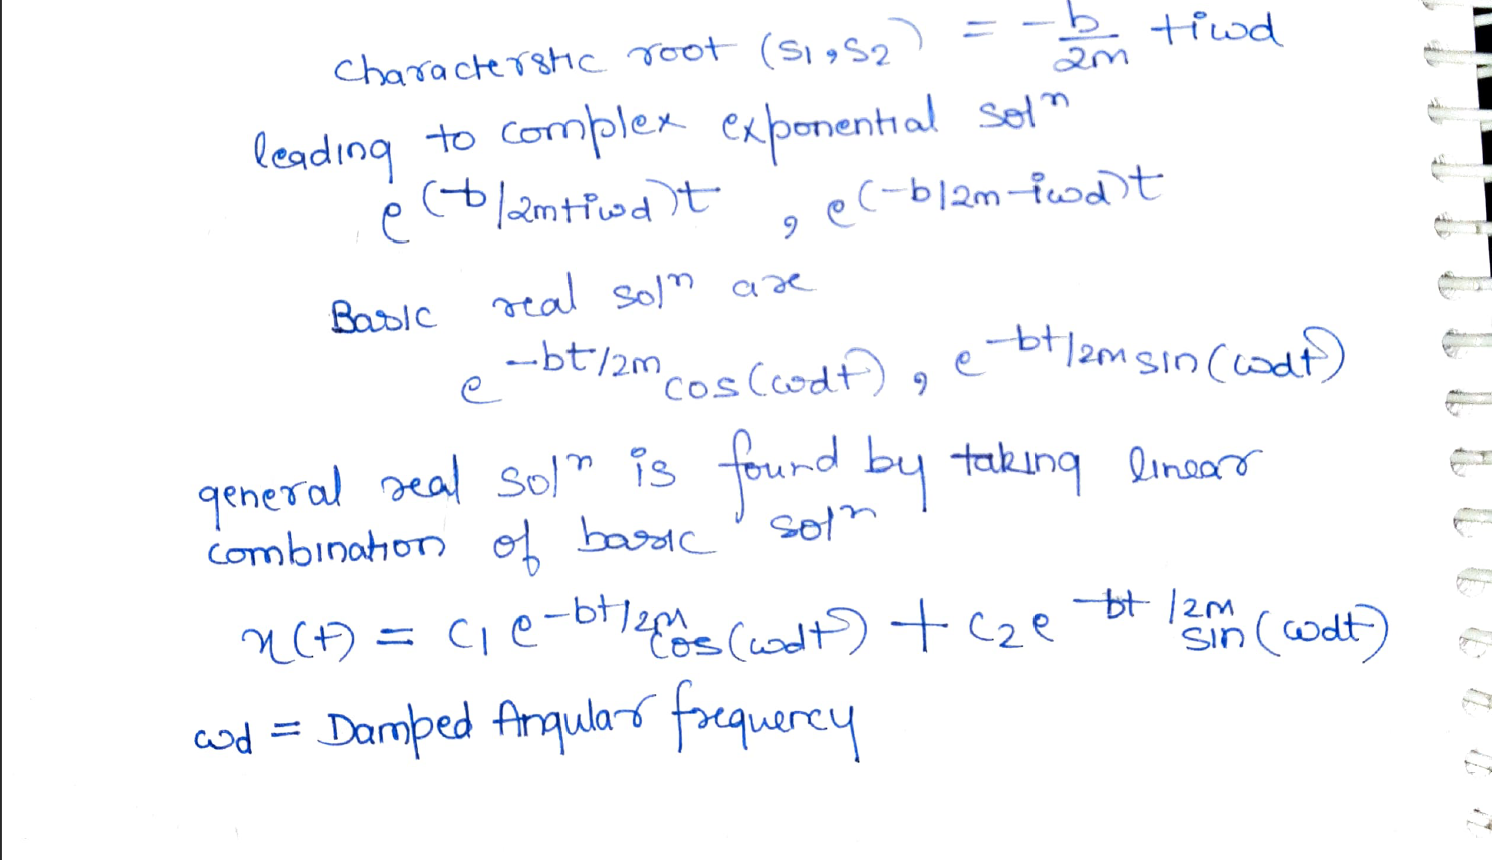 characterstic root (s1,s2) = -b/2m +iωd
leading to complex exponential solⁿ
e^(-b/2m+iωd)t , e^(-b/2m-iωd)t
Basic real solⁿ are
e^-bt/2m cos(ωdt) , e^-bt/2m sin(ωdt)
general real solⁿ is found by taking linear
combination of basic solⁿ
x(t) = c1 e^-bt/2m cos(ωdt) + c2 e^-bt/2m sin(ωdt)
ωd = Damped Angular frequency